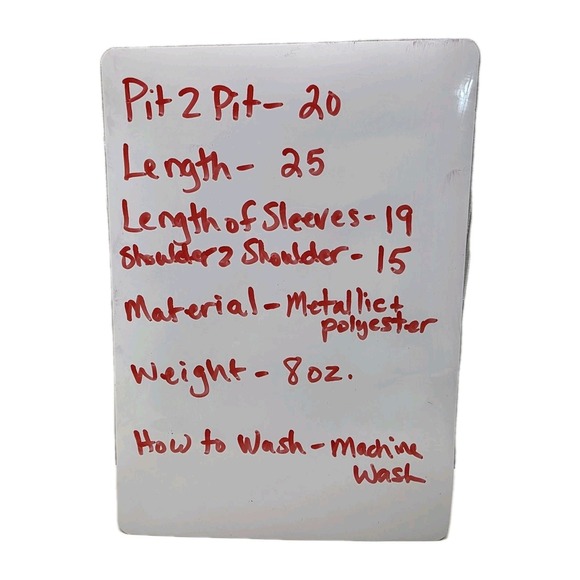 Pit 2 Pit - 20
Length - 25
Length of Sleeves - 19
Shoulder 2 Shoulder - 15
Material - Metallic +
polyester
Weight - 8 oz.
How to Wash - Machine
Wash